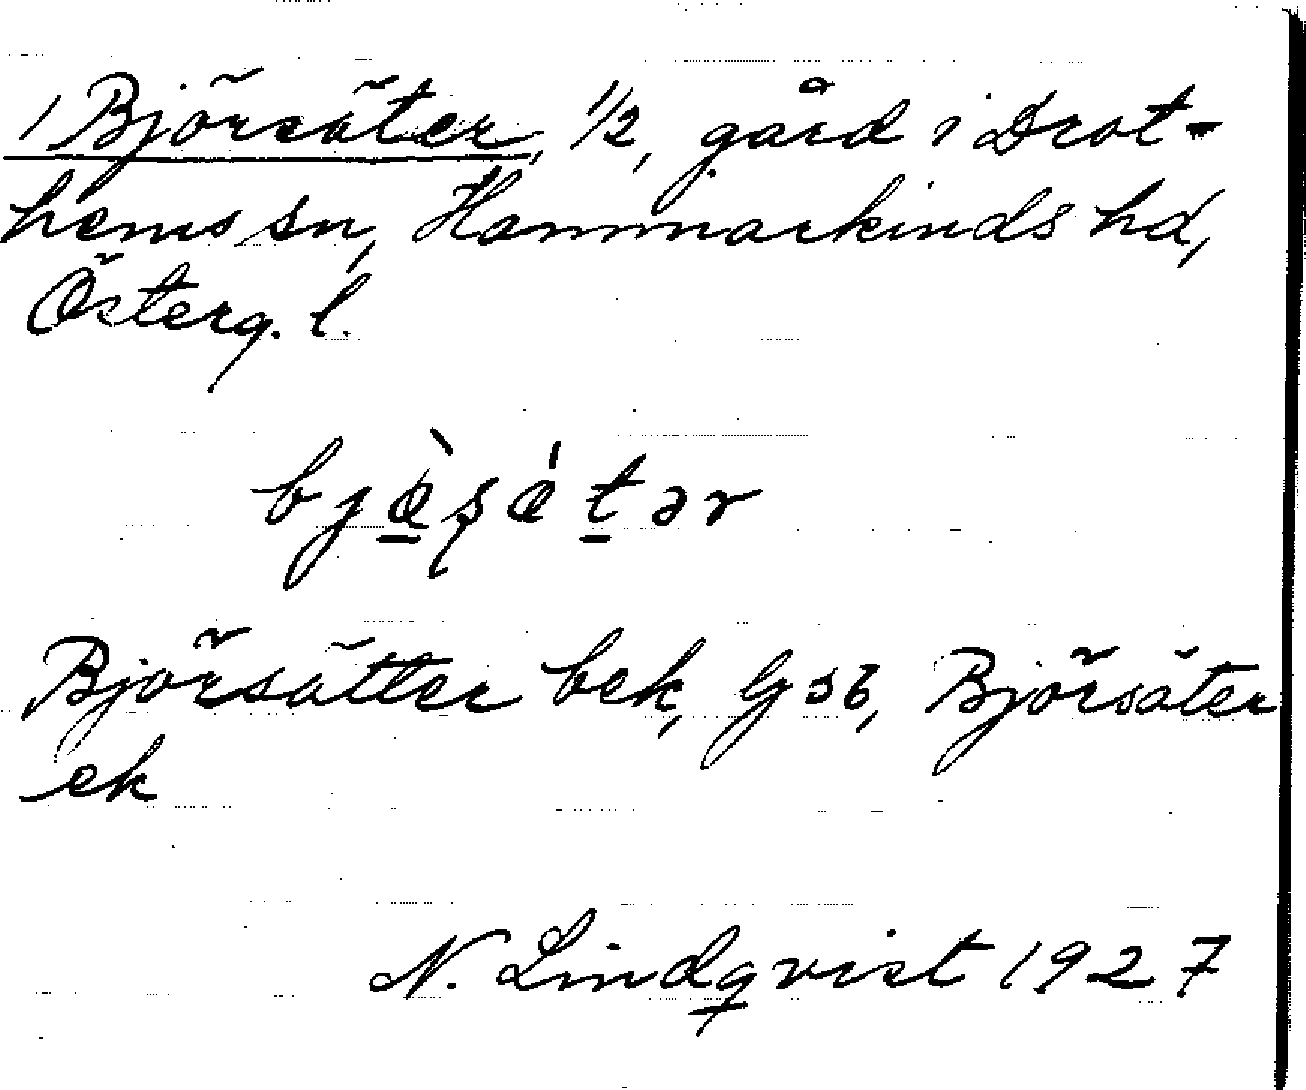 1 Björsäter, 1/2, gård i Drot-
hems sn, Hammarkinds hd,
Österg. l.
bjæ̀ʂǽtər
Björsätter bek, Gsb, Björsäter
ek
N. Lindqvist 1927